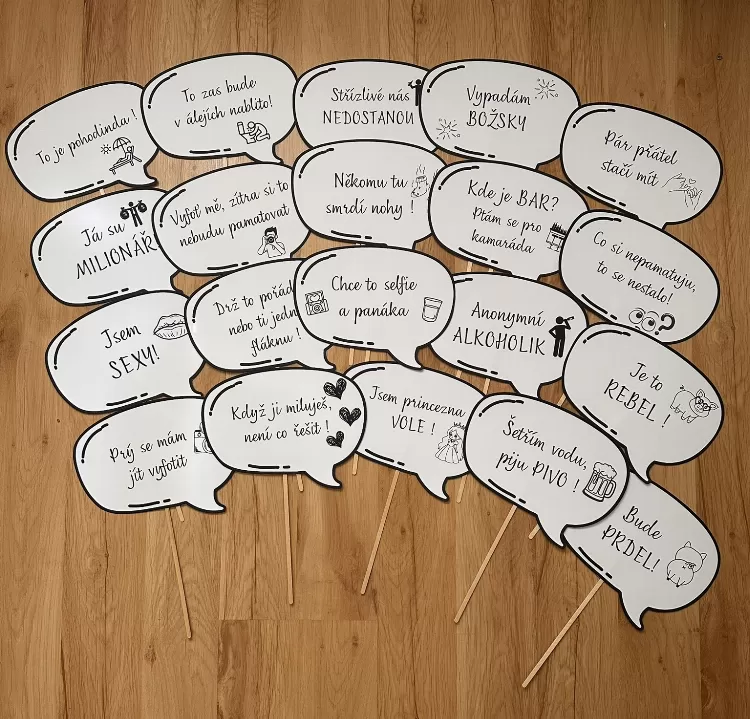 To je pohodinda !
To zas bude
v álejích nablito!
Střízlivé nás
NEDOSTANOU
Vypadám
BOŽSKY
Pár přátel
stačí mít
Já su
MILIONÁŘ
Vyfoť mě, zítra si to
nebudu pamatovat
Někomu tu
smrdí nohy !
Kde je BAR?
Ptám se pro
kamaráda
Co si nepamatuju,
to se nestalo!
Jsem
SEXY!
Drž to pořád
nebo ti jedn
fláknu !
Chce to selfie
a panáka
Anonymní
ALKOHOLIK
Je to
REBEL !
Prý se mám
jít vyfotit
Když ji miluješ,
není co řešit !
Jsem princezna
VOLE !
Šetřím vodu,
piju PIVO !
Bude
PRDEL!